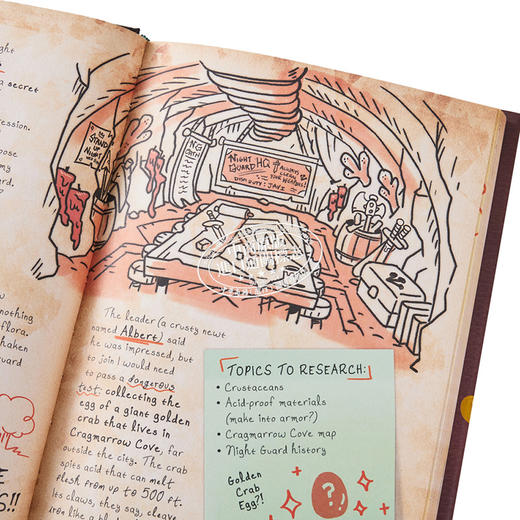 ght
s
a secret
ression.
pose
my
ard.
nothing
flora.
haken
uard
WE
STAND
AT
NIGHT
NIGHT
NIGHT
GUARD HQ
ALWAYS
CLEAN
YOUR
WEAPONS!
DISH DUTY: JAYS
The leader (a crusty newt
named Albert) said
he was impressed, but
to join I would need
to pass a dangerous
test: collecting the
egg of a giant golden
crab that lives in
Cragmarrow Cove, far
outside the city. The crab
spits acid that can melt
flesh from up to 500 ft.
Its claws, they say, cleave
iron like a
TOPICS TO RESEARCH:
• Crustaceans
• Acid-proof materials
(make into armor?)
• Cragmarrow Cove map
• Night Guard history
Golden
Crab
Egg?!
?
E
S!!